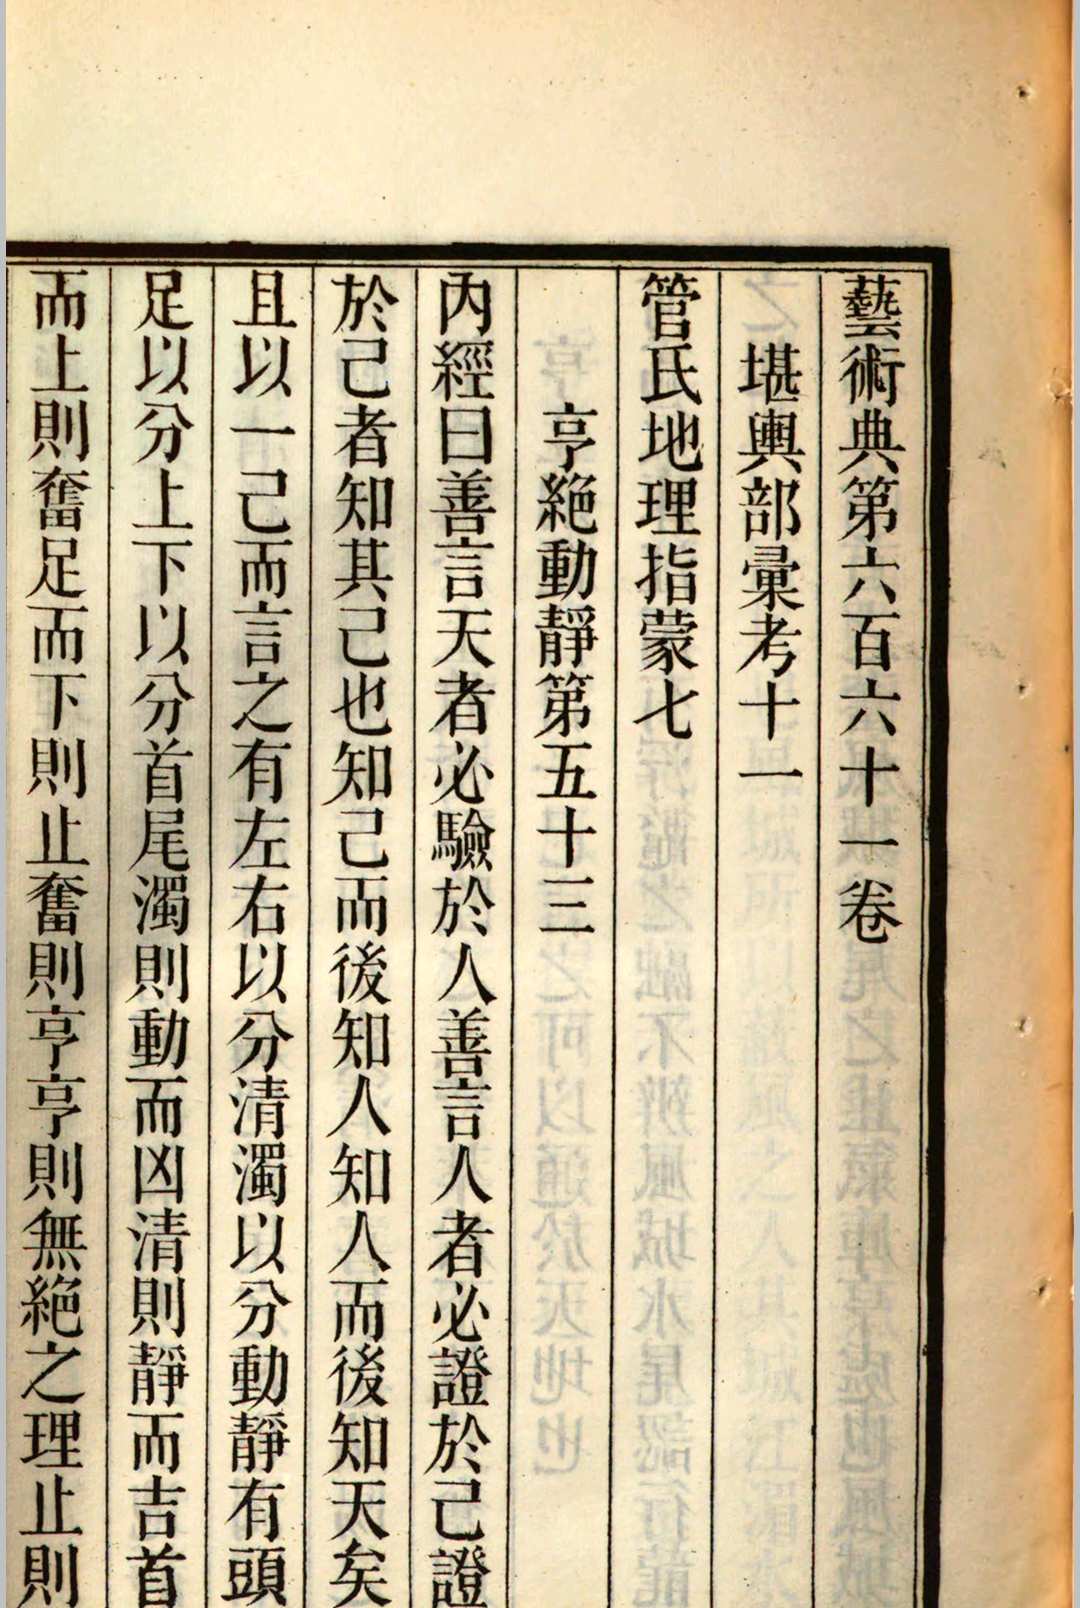 藝術典第六百六十一卷
堪輿部彙考十一
管氏地理指蒙七
亨絶動靜第五十三
內經曰善言天者必驗於人善言人者必證於己證
於己者知其己也知己而後知人知人而後知天矣
且以一己而言之有左右以分清濁以分動靜有頭
足以分上下以分首尾濁則動而凶清則靜而吉首
而上則奮足而下則止奮則亨亨則無絶之理止則